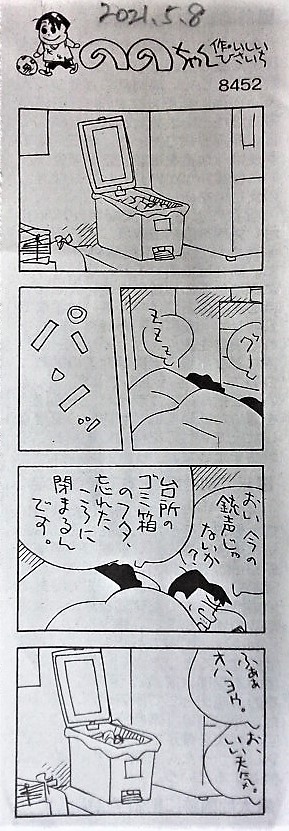 2021.5.8
ののちゃん
作・いしい
ひさいち
8452
グー
ZZZ
パンッ
おい、今の
銃声じゃ
ないか
?
台所の
ゴミ箱
のフタ、
忘れた
ころに
閉まるん
です。
ふぁぁ
オハヨウ。
お、
いい天気。